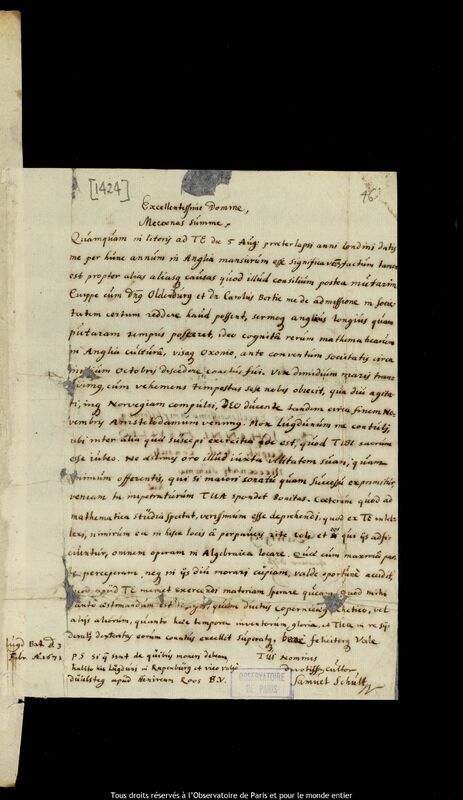 [1424]
46
Excellentissime Domine,
Mecoenas Summe,
Quamquam in literis ad TE de 5 Aug: praeterlapsi anni Londini datis
me per hunc annum in Anglia mansurum esse significaverim, factum tamen
est propter alias aliasq causas quod illud consilium postea mutarim
Quippe cum Dn9 Oldenburg et Dn Carolus Bertie me de admissione in Socie-
tatem certum reddere haud possent, sermoq anglicus longius quam
putaram tempus posceret, ideo cognita rerum mathematicarum
in Anglia cultura, visaq Oxonio, ante conventum Societatis circa
initium Octobris discedere coactus fui. Vix dimidium maris trans-
cum vehemens tempestas sese nobis obiecit, qua diu agita-
ti, inq Norvegiam compulsi, DEO ducente tandem circa finem No-
vembris Amstelodamum venimus. Mox Lugdunum me contuli,
ubi inter alia quae suscepi exercitia hoc est, quod TIBI sacrum
esse iubeo. Ne aestimes oro illud iuxta vilitatem suam, quam
animum offerentis, qui si maiori conatu quam successu exprimitur,
veniam ta impetraturum TUA spondet Bonitas. Caeterum quod ad
mathematica studia spectat, verissimum esse deprehendi, quod ex TE intel-
lexi, nimirum ea in hisce locis a perpaucis rite coli, et qui ijs adfi-
ciuntur, omnem operam in Algebraica locare. Quae cum maximam par-
perceperam, neq in ijs diu morari cupiam, valde opportune accidit,
quod apud TE memet exercendi materiam sperare queam. Quod mihi
tanto aestimandum est quam ductus Copernicaeus Chetico, vel
alijs aliorum, quanto haec tempora inventorum gloria, et TUA in re si-
deralis dexteritas eorum conatus excellit Superatq. feliciterq Vale
Lugd Bat. d. 3
Febr. A. 1671
TUI Nominis
devotiss9 Cultor
Samuel Schultz
P.S. Si q sunt de quibus monere debeam,
habito hic Lugduni in Rapenburg et vico vulgo
apud Henricum Roos B.V.
OBSERVATOIRE
DE PARIS
Tous droits réservés à l'Observatoire de Paris et pour le monde entier